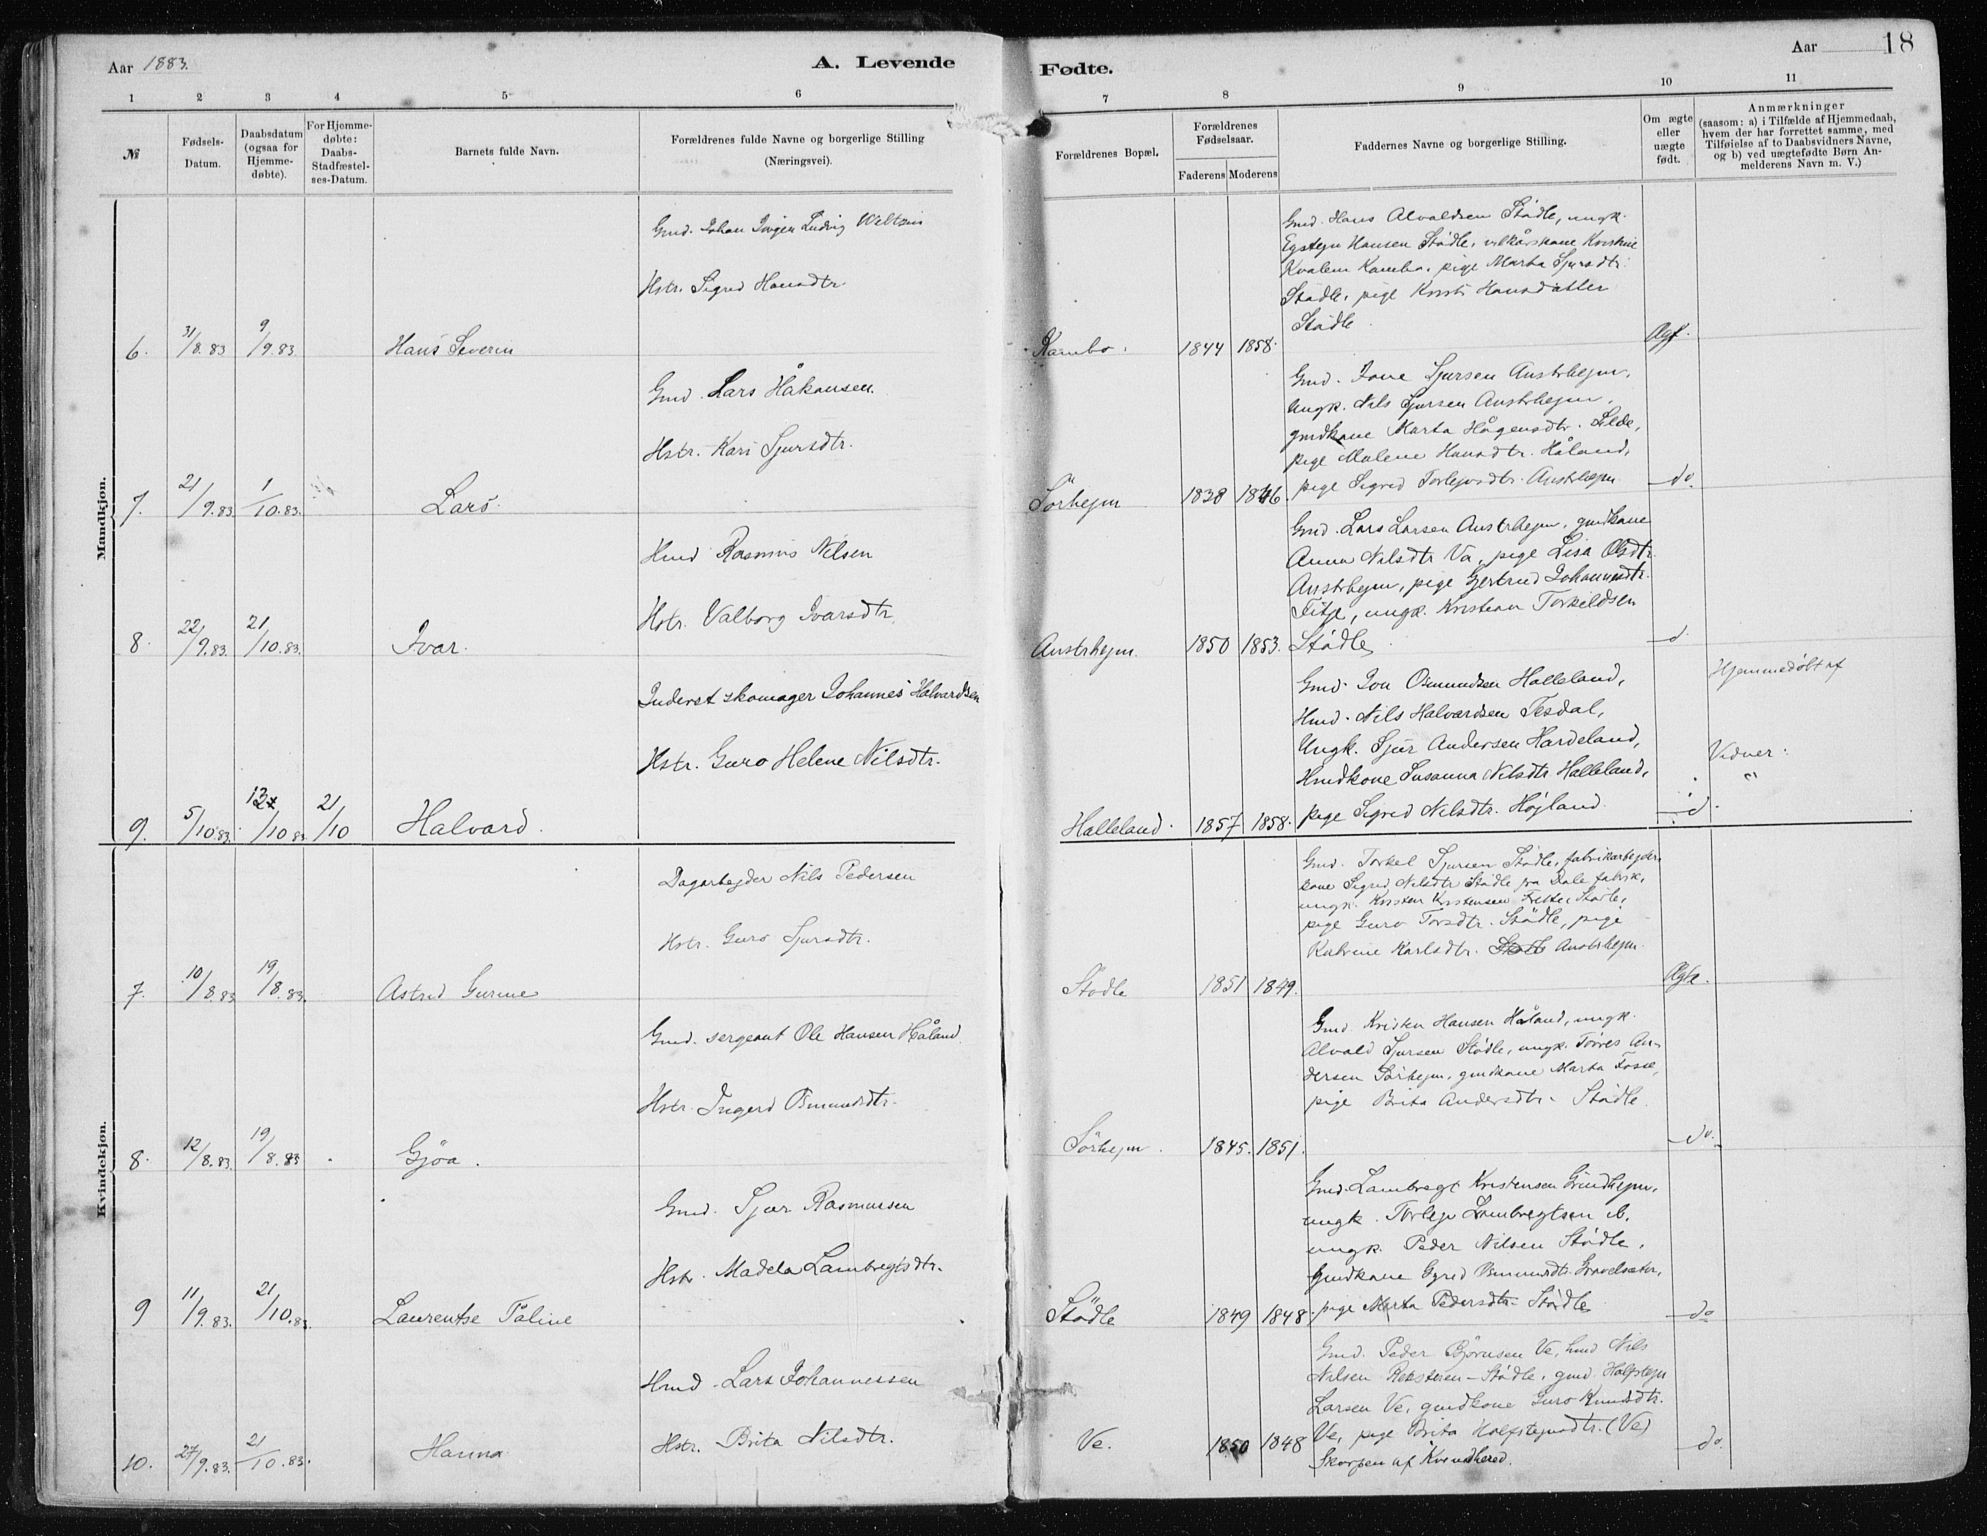 Aar 1883.
A. Levende Fødte.
Aar
18
1 2 3 4 5 6 7 8 9 10 11
№
Fødsels-Datum.
Daabsdatum (ogsaa for Hjemme-døbte).
For Hjemme-døbte: Daabs-Stadfæstel-ses-Datum.
Barnets fulde Navn.
Forældrenes fulde Navne og borgerlige Stilling
(Næringsvei).
Forældrenes Bopæl.
Forældrenes Fødselsaar.
Faderens Moderens
Faddernes Navne og borgerlige Stilling.
Om ægte eller uægte født.
Anmærkninger
(saasom: a) i Tilfælde af Hjemmedaab,
hvem der har forrettet samme, med
Tilføielse af to Daabsvidners Navne,
og b) ved uægtefødte Børn An-
melderens Navn m. V.)
Mandkjøn.
Gmd. Johan Ludvig
Hstr. Sigred Hansdtr.
6. 31/8.83 9/9.83 Hans Severin
Kambo. 1844 1858.
Gmd. Hans Alvaldsen Stødle, ungk.
Eystejn Hansen Stødle, vilkårskone Kristine
Kvalem Kambo, pige Marta Sjursdtr.
Stødle, pige Kristi Hansdatter
Stødle.
Ægt.
Gmd. Lars Håkonsen.
Hstr. Kari Sjursdtr.
7. 21/9.83. 1/10.83. Lars.
Sørhejm 1838 1846.
Gmd. Jone Sjursen Austrhejm,
Ungk. Nils Sjursen Austrhejm,
gmdkone Marta Hågensdtr. Silde,
pige Malene Hansdtr. Håland,
pige Sigred Torlejvsdtr. Austrhejm
do.
Hmd Rasmus Nilsen
Hstr. Valborg Ivarsdtr.
8. 22/9.83. 21/10.83. Ivar.
Austrhejm. 1850 1853.
Gmd. Lars Larsen Austrhejm, gmdkone
Anna Nilsdtr Va, pige Lisa Olsdtr.
Austrhejm, pige Gjertrud Johannesdtr.
Fitje, ungk. Kristian Torkildsen
Stødle
d.
Inderst skomager Johannes Halvardsen
Hstr. Guro Helene Nilsdtr.
9. 5/10.83. 21/10 Halvard.
Halleland. 1857 1858.
Gmd. Jon Osmundsen Halleland,
Hmd. Nils Halvardsen Tesdal,
Ungk. Sjur Andersen Hardeland,
Hmdkone Susanna Nilsdtr. Halleland,
pige Sigred Nilsdtr. Højland.
Hjemmedøbt af
Vidner:
"
Kvindekjøn.
Dagarbejder Nils Pedersen
Hstr. Guro Sjursdtr.
7. 10/8.83 19/8.83. Astrid Gurine
Stødle 1851 1849.
Gmd. Torkel Sjursen Stødle, fabrikarbejder-
kone Sigred Nilsdtr Stødle fra Dale fabrik,
ungk. Kristen Kristensen Stødle,
pige Guro Torsdtr. Stødle, pige
Katrine Karlsdtr. Austrhejm.
Ægte.
Gmd. sergeant Ole Hansen Håland.
Hstr. Ingerd Osmundsdtr.
8. 12/8.83. 19/8.83 Gjøa.
Sørhejm. 1845. 1851.
Gmd. Kristen Hansen Håland, ungk.
Alvald Sjursen Stødle, ungk. Torres An-
dersen Sørhejm, gmdkone Marta Fosse,
pige Brita Andersdtr. Stødle.
do.
Gmd. Sjur Rasmussen
Hstr. Madela Lambregtsdtr.
9 11/9.83. 21/10.83. Laurentse Taline
Stødle 1849 1848.
Gmd. Lambregt Kristensen Grindhejm,
ungk. Torlejv Lambregtsen ib,
ungk. Peder Nilsen Stødle,
Gmdkone Gyred Osmundsdtr.
pige Marta Pedersdtr. Stødle
do
Hmd. Lars Johannessen
Hstr. Brita Nilsdtr.
10. 27/9.83. 21/10.83. Hanna
Ve. 1850 1848
Gmd. Peder Bjørnsen Ve, hmd Nils
Nilsen Reksteren-Stødle, gmd. Halfstejn
Larsen Ve, gmdkone Guro Knudsdtr.
Ve, pige Brita Halfstejnsdtr. (Ve)
Skorpen af Kvindhered.
do.